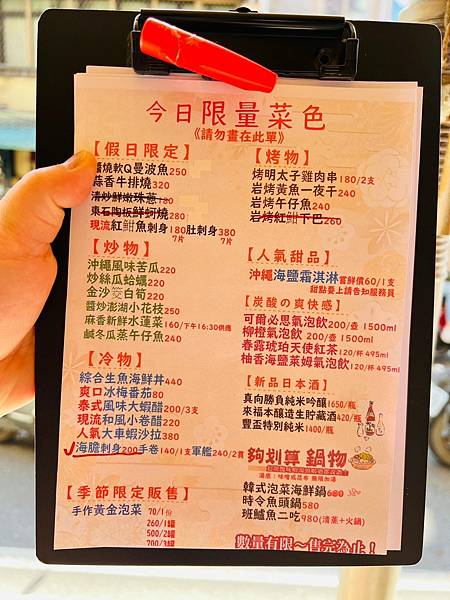 今日限量菜色
《請勿畫在此單》
【假日限定】
醬燒軟Q曼波魚250
蒜香牛排燒320
清炒鮮嫩珠蔥180
東石陶板鮮蚵燒280
現流紅魽魚刺身180/7片 肚刺身380/7片
【炒物】
沖繩風味苦瓜220
炒絲瓜蛤蠣220
金沙筊白筍220
醬炒澎湖小花枝250
麻香新鮮水蓮菜160/下午16:30供應
鹹冬瓜蒸午仔魚240
【冷物】
綜合生魚海鮮丼440
爽口冰梅番茄80
泰式風味大蝦醋200/3支
現流和風小卷醋220
人氣大車蝦沙拉380
海膽刺身200手卷140/1支軍艦240/2貫
【季節限定販售】
手作黃金泡菜 70/1份
260/1罐
500/2罐
700/3罐
【烤物】
烤明太子雞肉串180/2支
岩烤黃魚一夜干240
岩烤午仔魚240
岩烤紅魽下巴260
【人氣甜品】
沖繩海鹽霜淇淋嘗鮮價60/1支
甜點要上請告知服務員
【炭酸の爽快感】
可爾必思氣泡飲200/壺1500ml
柳橙氣泡飲200/壺1500ml
春露琥珀天使紅茶120/杯495ml
柚香海鹽萊姆氣泡飲120/杯495ml
【新品日本酒】
真向勝負純米吟釀1650/瓶
來福本釀造生貯藏酒420/瓶
豐盃特別純米1400/瓶
夠划算 鍋物
韓式泡菜海鮮鍋680
時令魚頭鍋580
班鱸魚二吃980(清蒸+火鍋)
數量有限～售完為止！